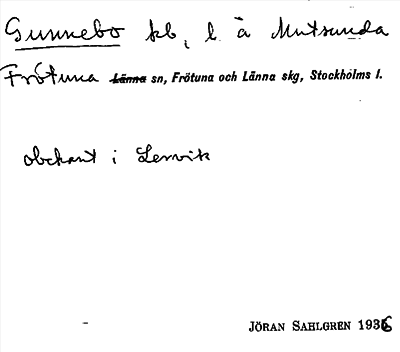 Gunnebo kb, l. å Mutsunda
Frötuna Länna sn, Frötuna och Länna skg, Stockholms l.
obekant i Lenvik
JÖRAN SAHLGREN 1936